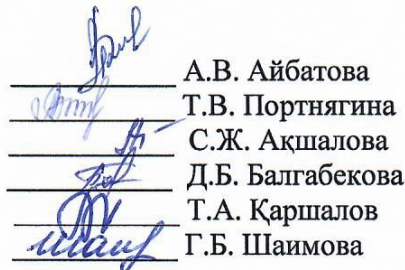 А.В. Айбатова
Т.В. Портнягина
С.Ж. Ақшалова
Д.Б. Балгабекова
Т.А. Қаршалов
Г.Б. Шаимова